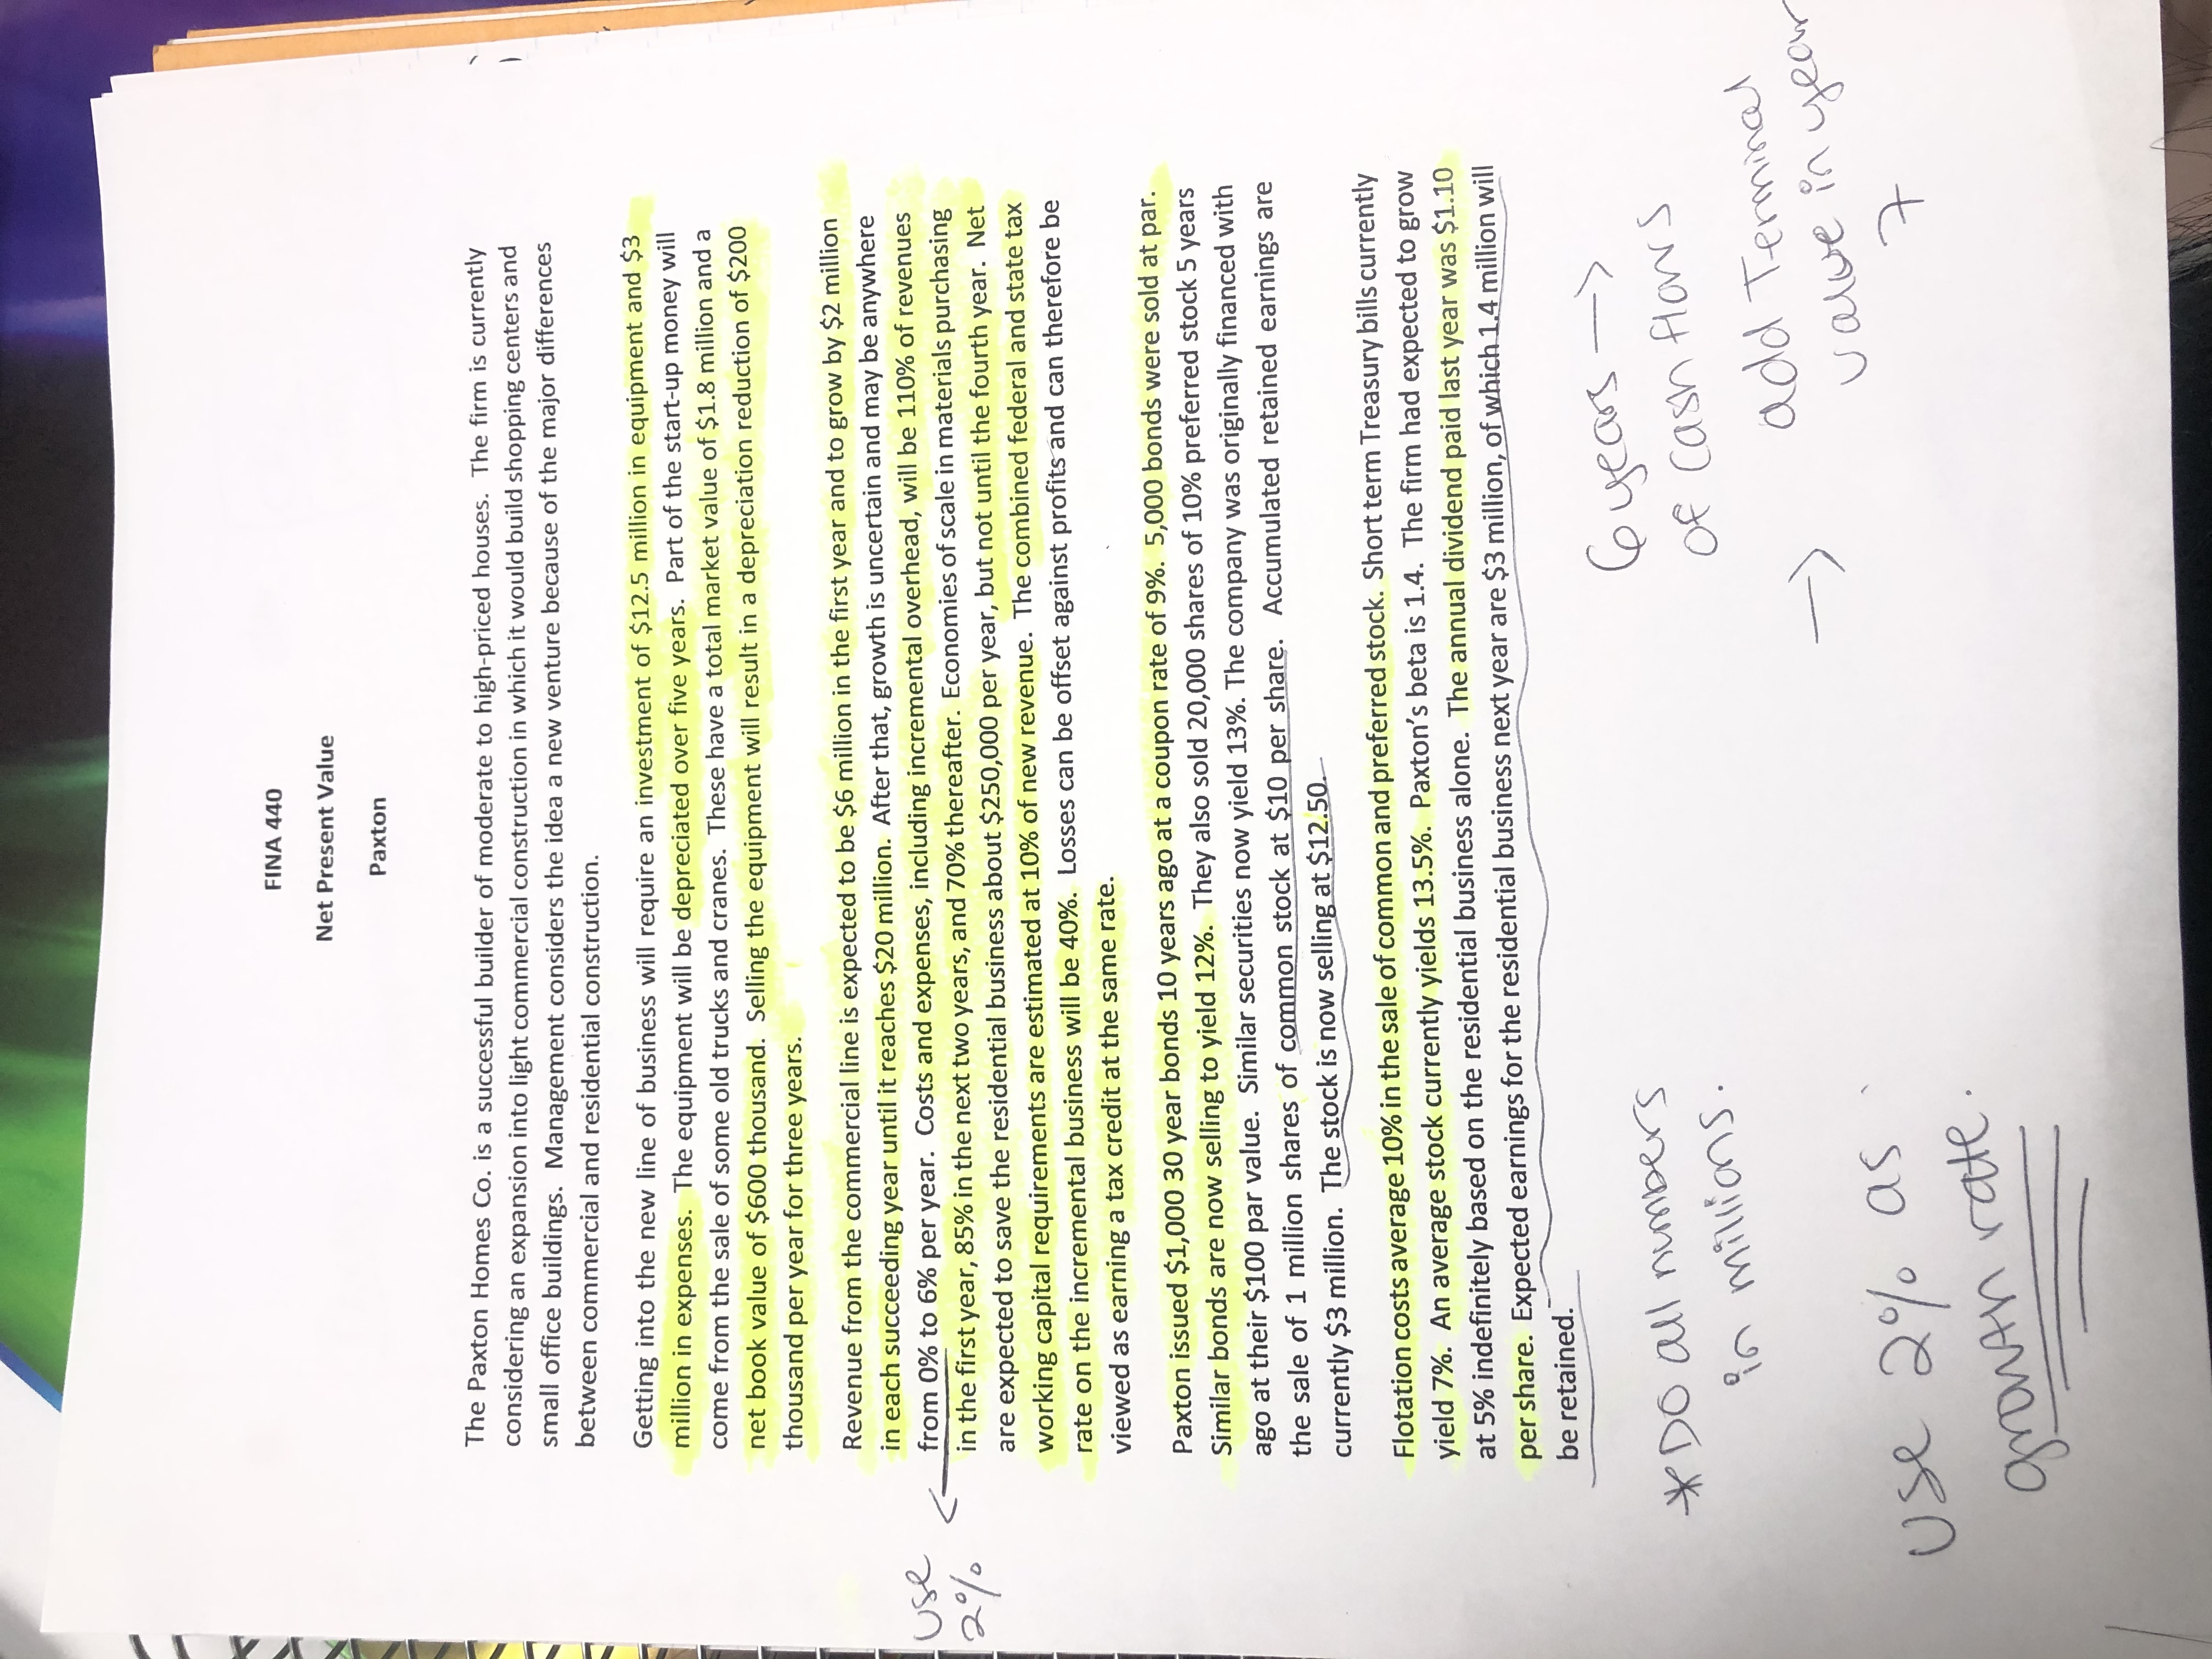 FINA 440
Net Present Value
Paxton
The Paxton Homes Co. is a successful builder of moderate to high-priced houses. The firm is currently
considering an expansion into light commercial construction in which it would build shopping centers and
small office buildings. Management considers the idea a new venture because of the major differences
between commercial and residential construction.
Getting into the new line of business will require an investment of $12.5 million in equipment and $3
million in expenses. The equipment will be depreciated over five years. Part of the start-up money will
come from the sale of some old trucks and cranes. These have a total market value of $1.8 million and a
net book value of $600 thousand. Selling the equipment will result in a depreciation reduction of $200
thousand per year for three years.
Revenue from the commercial line is expected to be $6 million in the first year and to grow by $2 million
in each succeeding year until it reaches $20 million. After that, growth is uncertain and may be anywhere
from 0% to 6% per year. Costs and expenses, including incremental overhead, will be 110% of revenues
in the first year, 85% in the next two years, and 70% thereafter. Economies of scale in materials purchasing
are expected to save the residential business about $250,000 per year, but not until the fourth year. Net
working capital requirements are estimated at 10% of new revenue. The combined federal and state tax
rate on the incremental business will be 40%. Losses can be offset against profits and can therefore be
viewed as earning a tax credit at the same rate.
use
2%
Paxton issued $1,000 30 year bonds 10 years ago at a coupon rate of 9%. 5,000 bonds were sold at par.
Similar bonds are now selling to yield 12%. They also sold 20,000 shares of 10% preferred stock 5 years
ago at their $100 par value. Similar securities now yield 13%. The company was originally financed with
the sale of 1 million shares of common stock at $10 per share. Accumulated retained earnings are
currently $3 million. The stock is now selling at $12.50.
Flotation costs average 10% in the sale of common and preferred stock. Short term Treasury bills currently
yield 7%. An average stock currently yields 13.5%. Paxton's beta is 1.4. The firm had expected to grow
at 5% indefinitely based on the residential business alone. The annual dividend paid last year was $1.10
per share. Expected earnings for the residential business next year are $3 million, of which 1.4 million will
be retained.
*DO all numbers
in millions.
use 2% as
growth rate.
6 years →
of cash flows
→ add Terminal
value in year
7